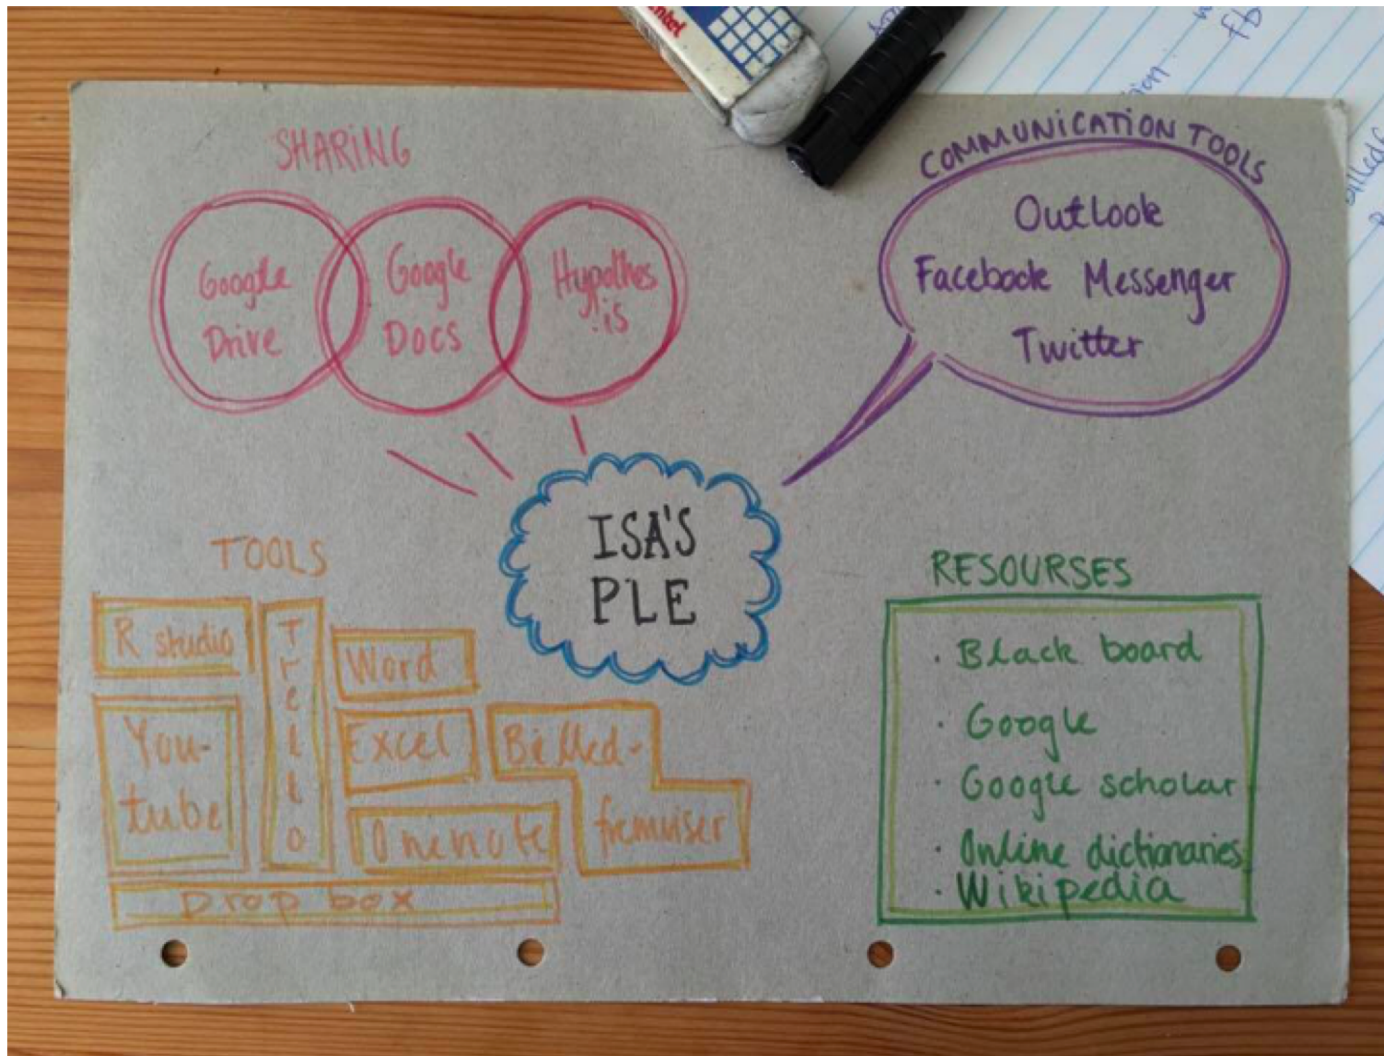 SHARING
Google
Drive
Google
Docs
Hypothes
.is
COMMUNICATION TOOLS
Outlook
Facebook Messenger
Twitter
ISA'S
PLE
TOOLS
R studio
Trello
Word
You-
tube
Excel
Billed-
fremviser
Onenote
Drop box
RESOURSES
· Black board
· Google
· Google scholar
· Online dictionaries
· Wikipedia